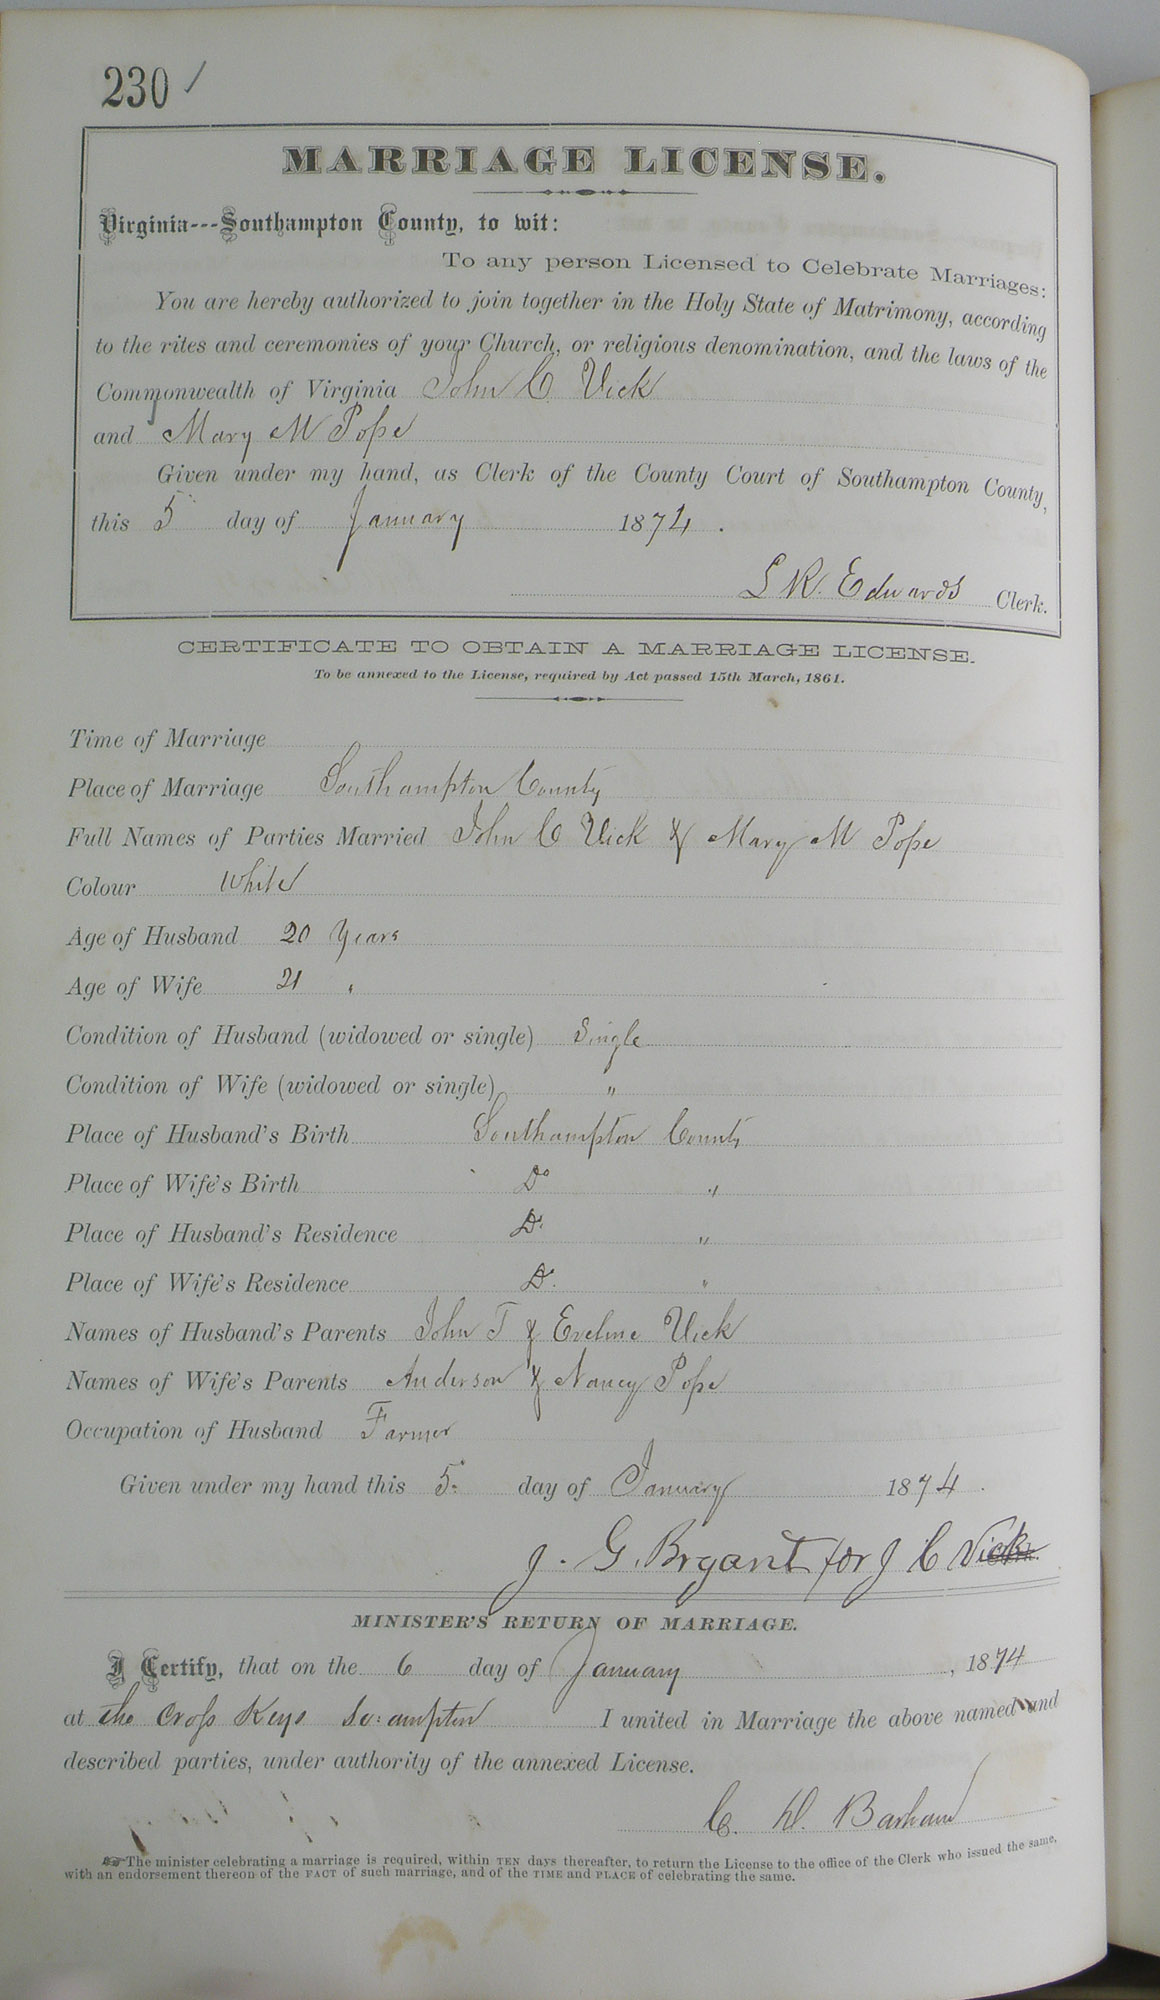 230 /
MARRIAGE LICENSE.
Virginia---Southampton County, to wit:
To any person Licensed to Celebrate Marriages:
You are hereby authorized to join together in the Holy State of Matrimony, according
to the rites and ceremonies of your Church, or religious denomination, and the laws of the
Commonwealth of Virginia John C Vick
and Mary M Pope
Given under my hand, as Clerk of the County Court of Southampton County,
this 5 day of January 1874.
L R. Edwards Clerk.
CERTIFICATE TO OBTAIN A MARRIAGE LICENSE.
To be annexed to the License, required by Act passed 15th March, 1861.
Time of Marriage
Place of Marriage Southampton County
Full Names of Parties Married John C Vick & Mary M Pope
Colour White
Age of Husband 20 Years
Age of Wife 21 "
Condition of Husband (widowed or single) Single
Condition of Wife (widowed or single) "
Place of Husband's Birth Southampton County
Place of Wife's Birth Do "
Place of Husband's Residence Do "
Place of Wife's Residence Do "
Names of Husband's Parents John T & Eveline Vick
Names of Wife's Parents Anderson & Nancy Pope
Occupation of Husband Farmer
Given under my hand this 5: day of January 1874.
J. G. Bryant for J C Vick
MINISTER'S RETURN OF MARRIAGE.
I Certify, that on the 6 day of January, 1874
at the Cross Keys So:ampton I united in Marriage the above named and
described parties, under authority of the annexed License.
C. W. Barham
☞The minister celebrating a marriage is required, within TEN days thereafter, to return the License to the office of the Clerk who issued the same,
with an endorsement thereon of the FACT of such marriage, and of the TIME and PLACE of celebrating the same.